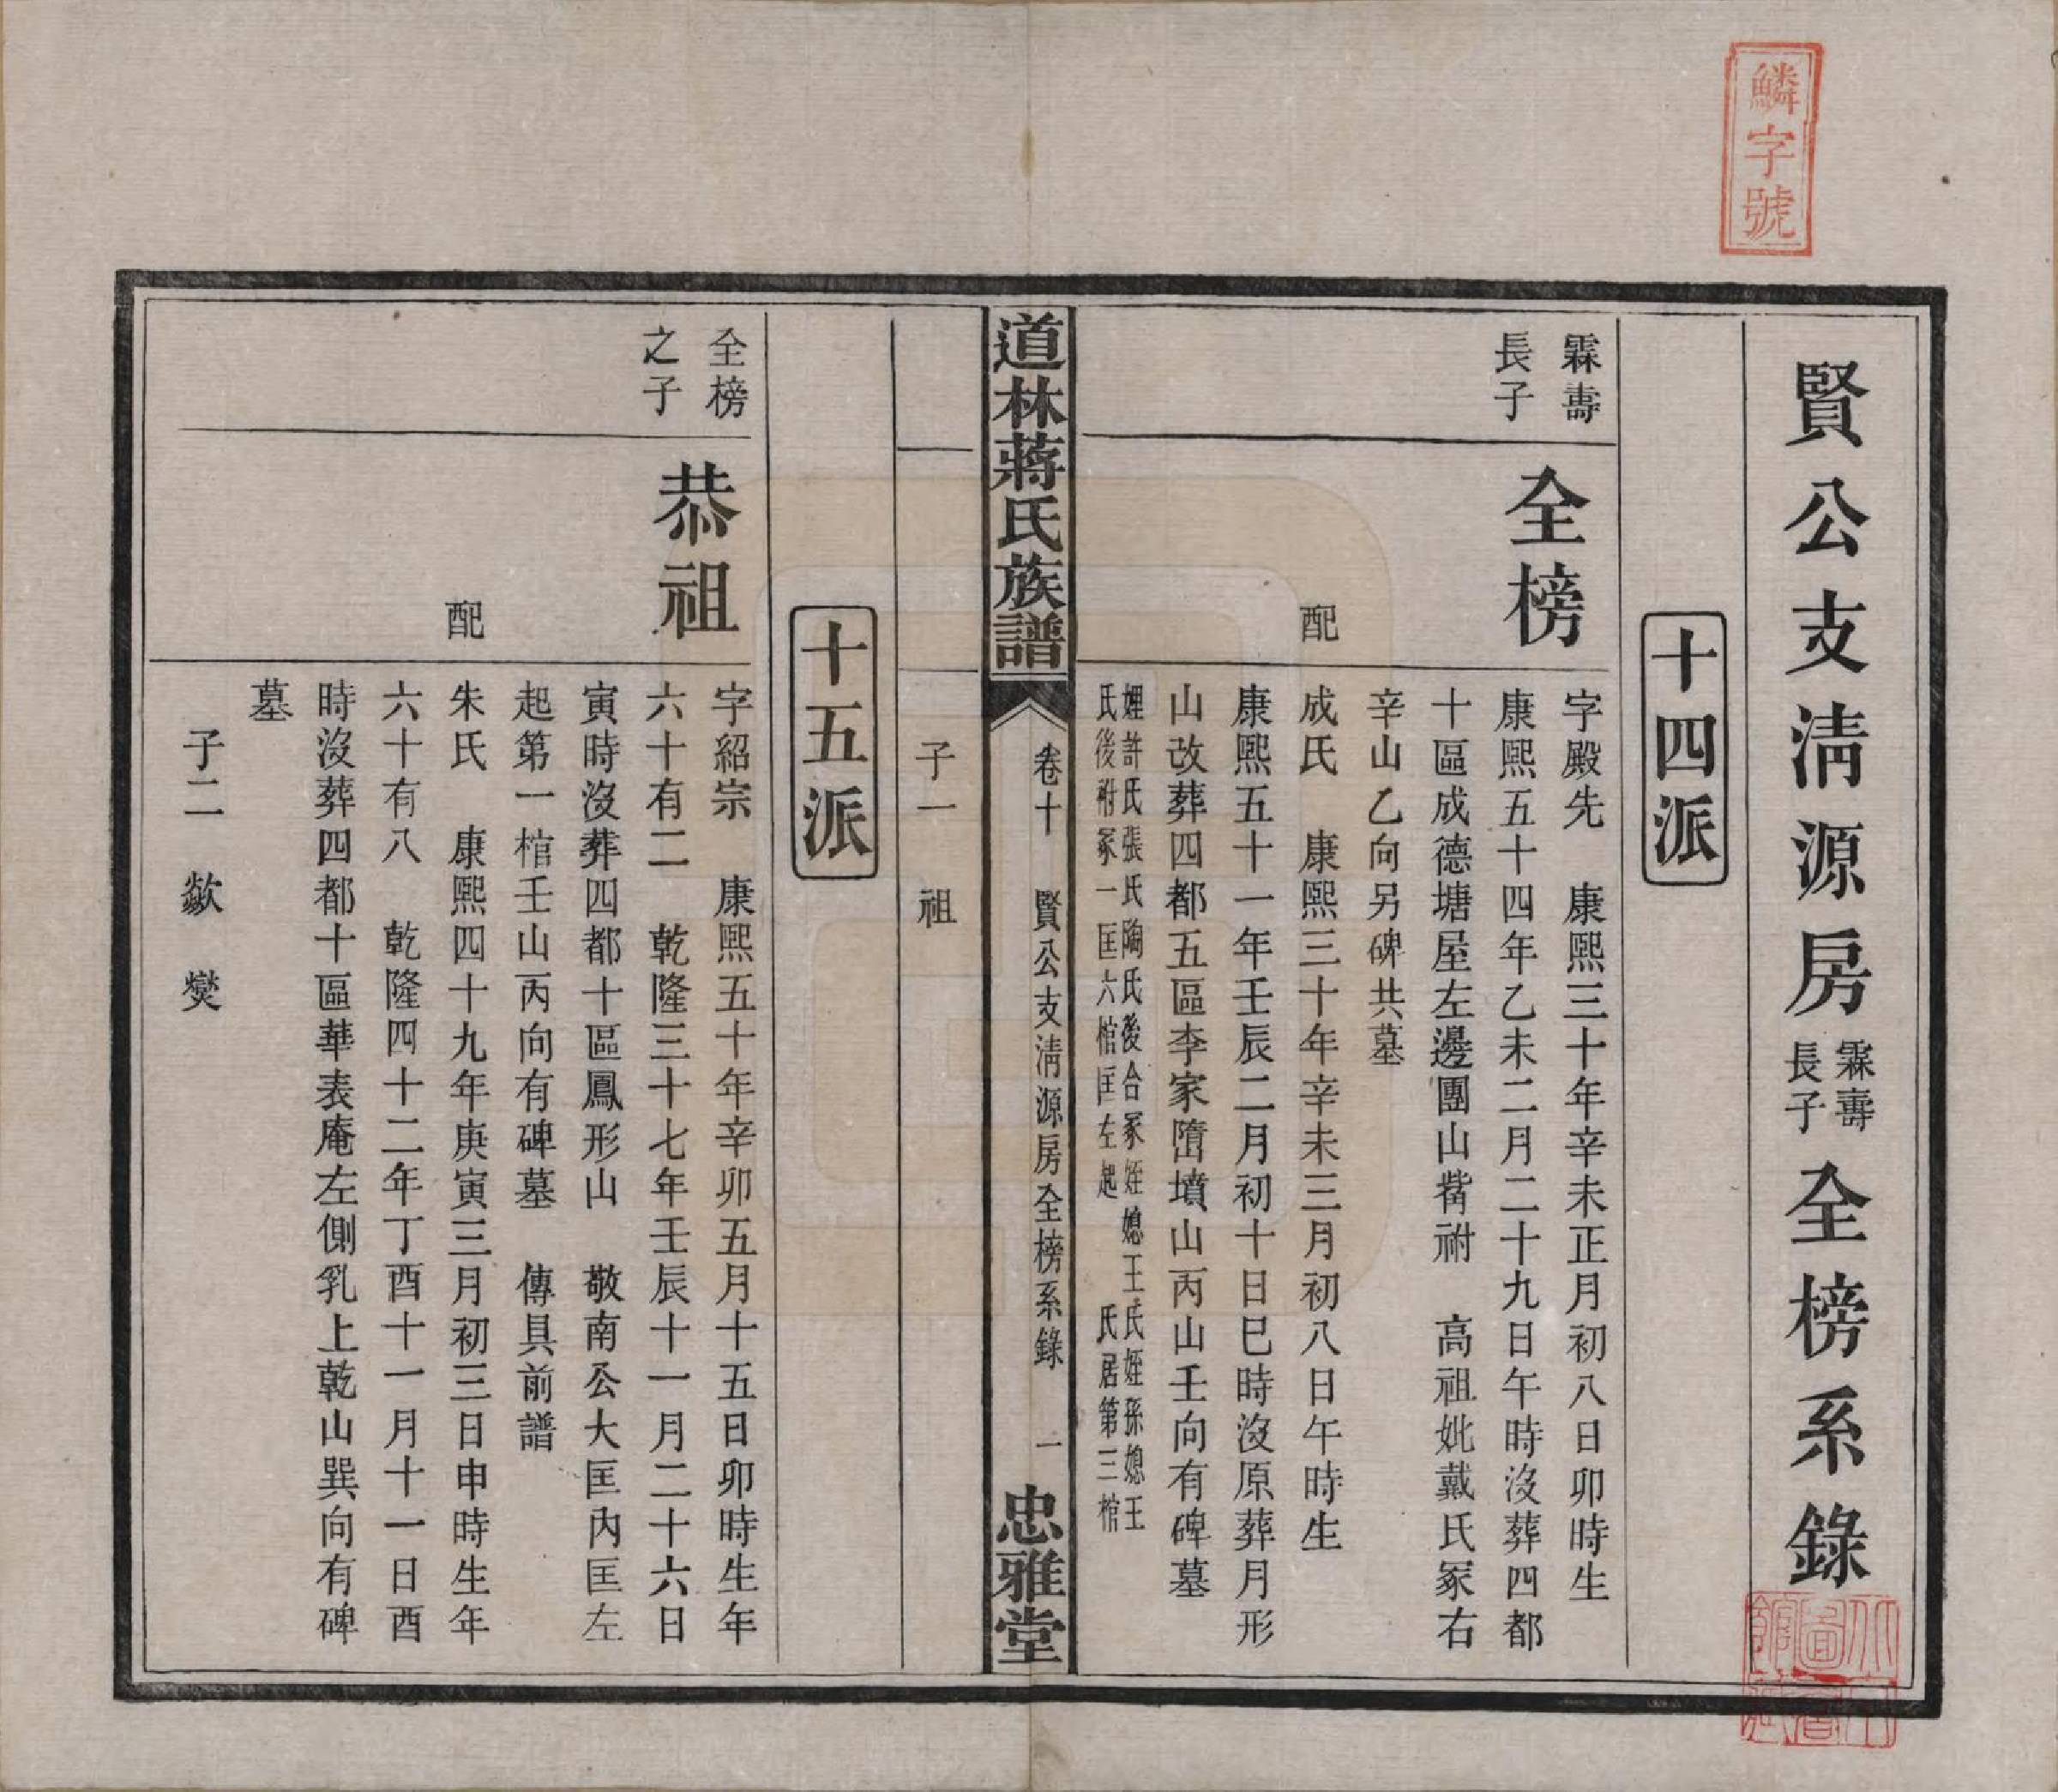 鱗字號
賢公支淸源房霖壽長子全榜系錄
十四派
霖壽
長子
全榜
字殿先　康熙三十年辛未正月初八日卯時生
康熙五十四年乙未二月二十九日午時沒葬四都
十區成德塘屋左邊團山觜祔　高祖妣戴氏冢右
辛山乙向另碑共墓
配
成氏　康熙三十年辛未三月初八日午時生
康熙五十一年壬辰二月初十日巳時沒原葬月形
山改葬四都五區李家墳山丙山壬向有碑墓
娌許氏張氏陶氏後合冢姪媳王氏姪孫媳王
氏後祔冢一匡六棺匡左起　氏居第三棺
道林蔣氏族譜
卷十　賢公支淸源房全榜系錄　一
忠雅堂
子一　祖
十五派
全榜
之子
恭祖
字紹宗　康熙五十年辛卯五月十五日卯時生年
六十有二　乾隆三十七年壬辰十一月二十六日
寅時沒葬四都十區鳳形山　敬南公大匡內匡左
起第一棺壬山丙向有碑墓　傳具前譜
配
朱氏　康熙四十九年庚寅三月初三日申時生年
六十有八　乾隆四十二年丁酉十一月十一日酉
時沒葬四都十區華表庵左側乳上乾山巽向有碑
墓
子二　歘　爕